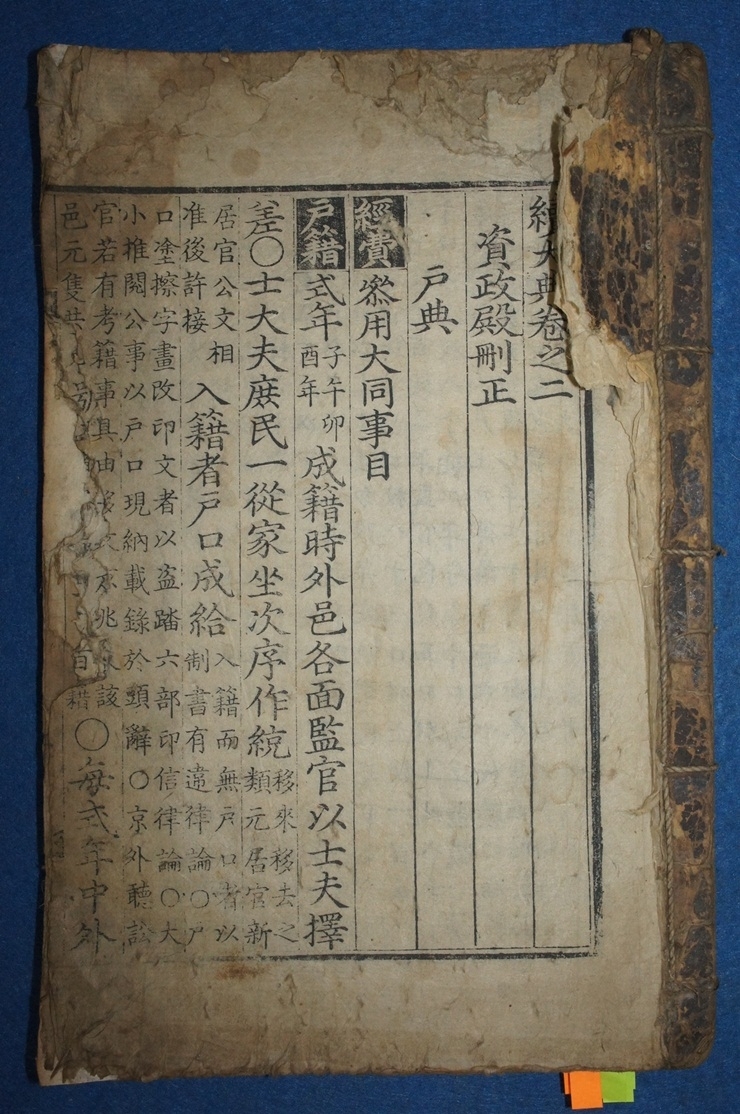 續大典卷之二
資政殿刪正
戶典
經費叅用大同事目
戶籍式年子午卯酉年成籍時外邑各面監官以士夫擇
差○士大夫庶民一從家坐次序作統移來移去之類元居官新
居官公文相准後許接入籍者戶口成給入籍而無戶口者以制書有違律論○戶
口塗擦字畫改印文者以盜踏六部印信律論○大小推閱公事以戶口現納載錄於頭辭○京外聽訟
官若有考籍事具由文京兆該邑元隻籍○每式年中外